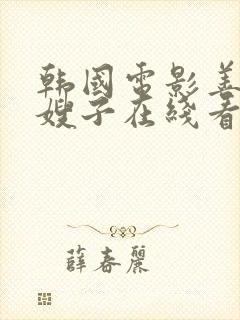 韩国电影善
嫂子在线看
薛春丽